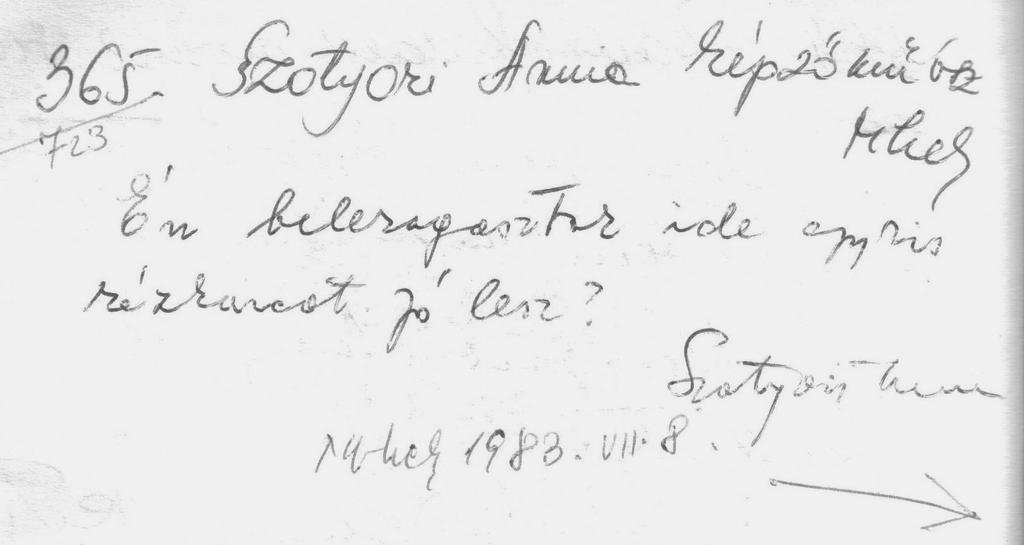 365. Szotyori Anna képzőművész
Mhely
723
Én beleragasztok ide egy kis
rézkarcot. Jó lesz?
Szotyori Anna
M-hely 1983. VII. 8.